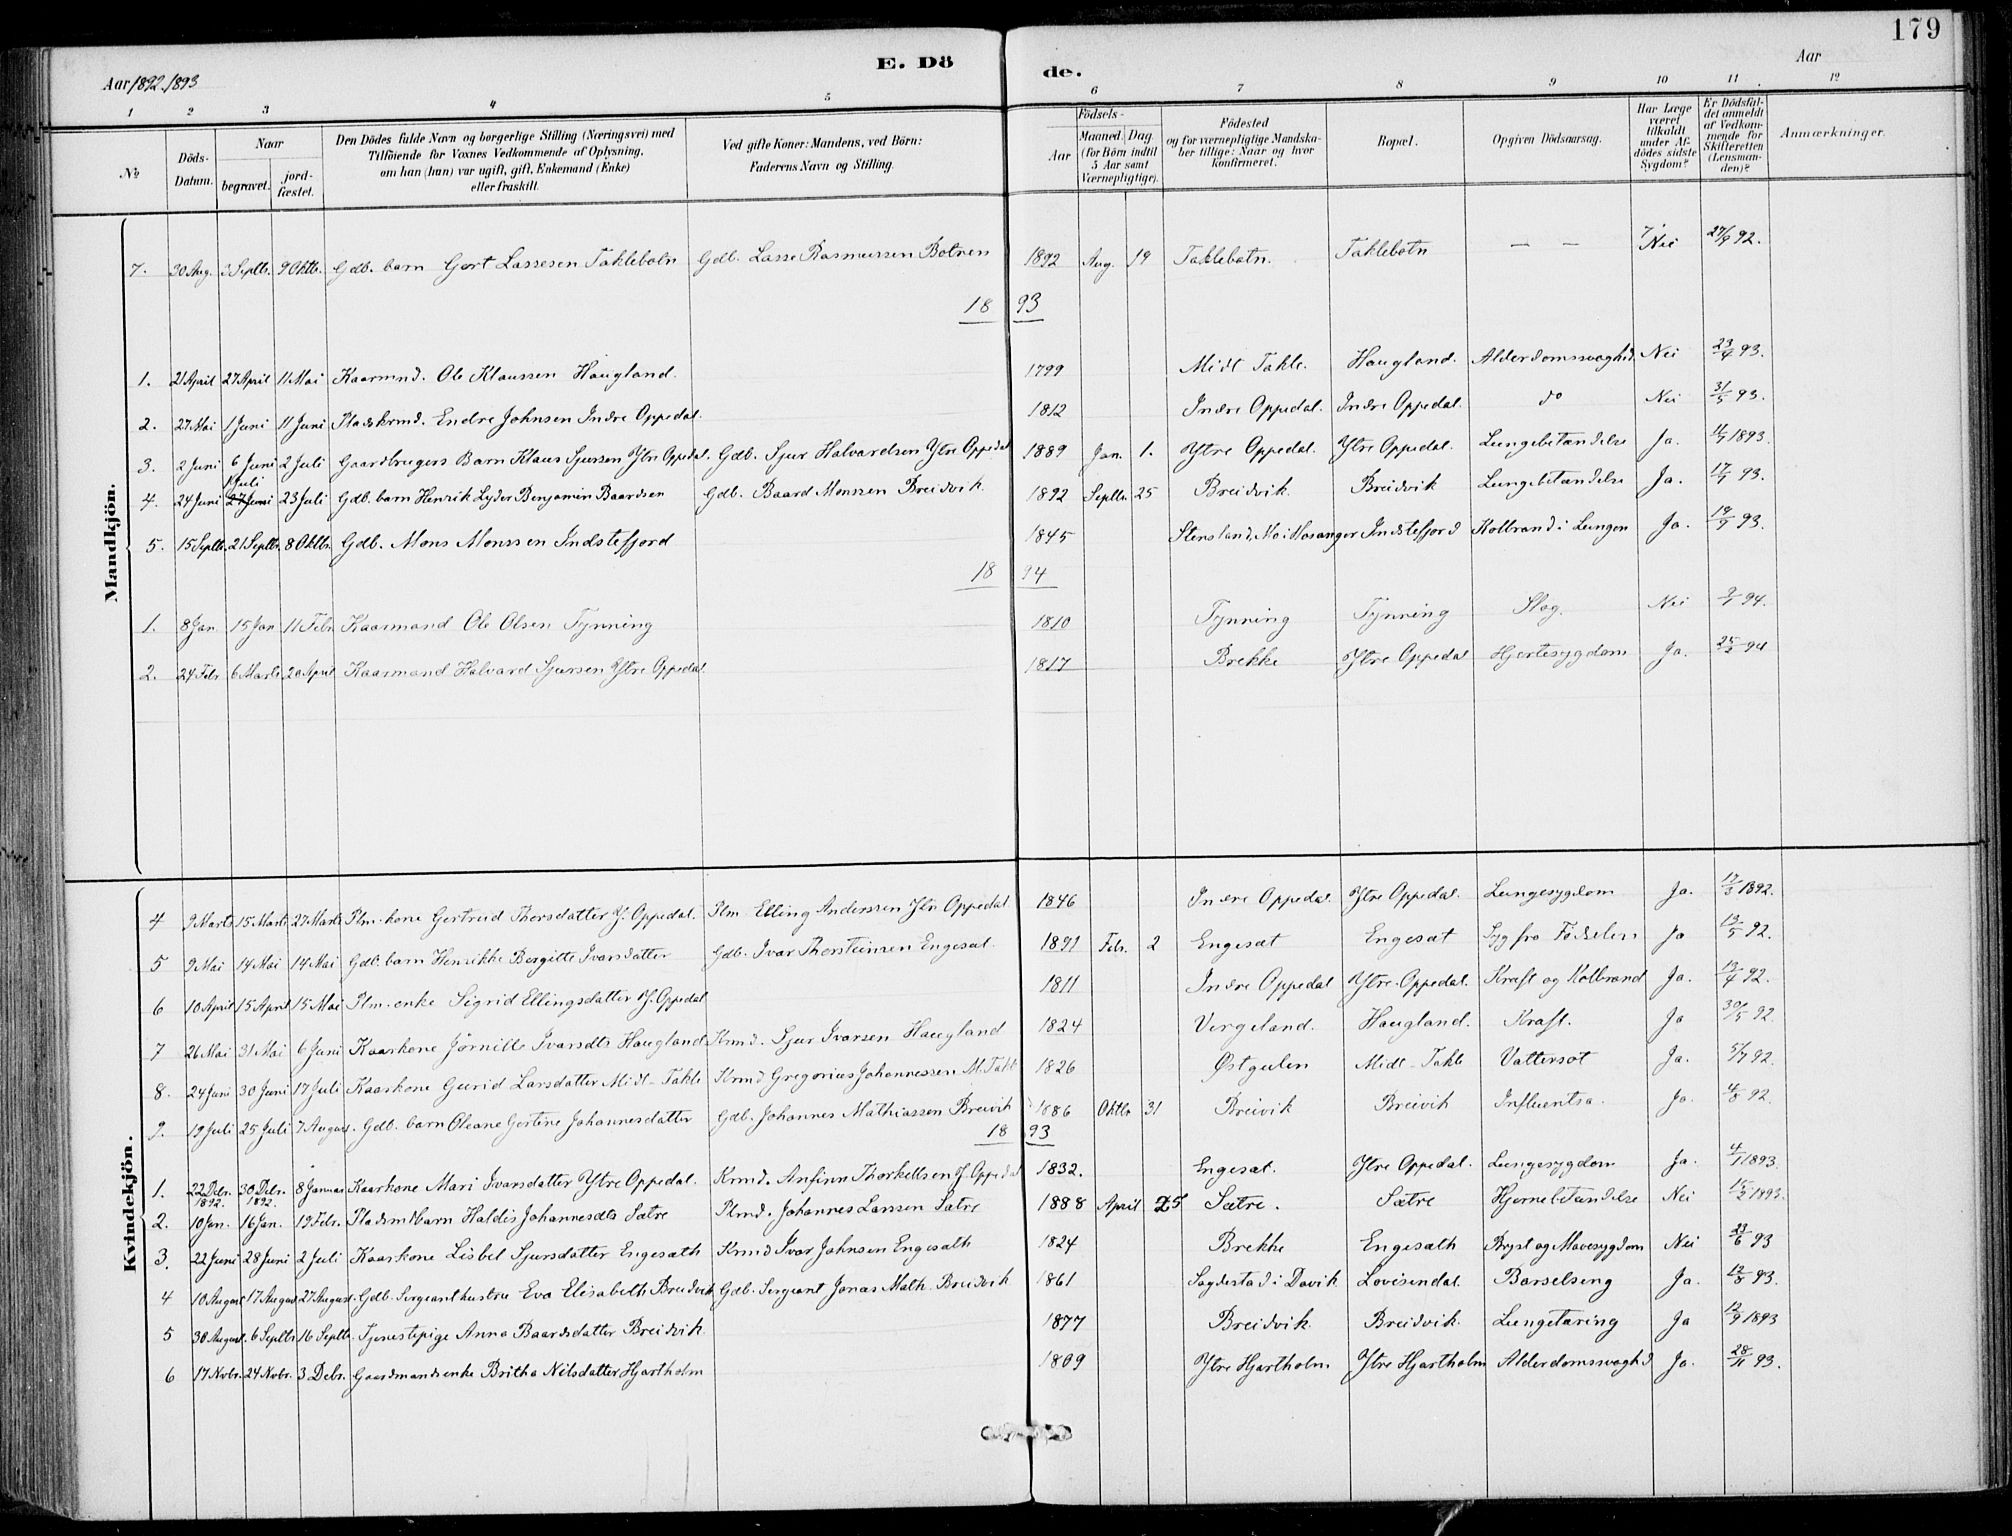 179
Aar 1892. 1893
E. Dö
de.
Aar
1 2 3 4 5 6 7 8 9 10 11 12
№
Döds-Datum.
Naar
begravet.
jord-fæstet.
Den Dödes fulde Navn og borgerlige Stilling (Næringsvei) med
Tilföiende for Voxnes Vedkommende af Oplysning,
om han (hun) var ugift, gift, Enkemand (Enke)
eller fraskilt.
Ved gifte Koner: Mandens, ved Börn:
Faderens Navn og Stilling.
Födsels-
Aar
Maaned. Dag.
(for Börn indtil
5 Aar samt
Værnepligtige).
Födested
og for værnepligtige Mandska-
ber tillige: Naar og hvor
konfirmeret.
Bopæl.
Opgiven Dödsaarsag.
Har Læge
været
tilkaldt
under Af-
dödes sidste
Sygdom?
Er Dödsfal-
det anmeldt
af Vedkom-
mende for
Skifteretten
(Lensman-
den)?
Anmærkninger.
Mandkjön.
7. 30 Aug. 3 Septbr. 9 Oktb. Gdb. barn Gert Lassesen Taklebotn Gdb. Lasse Rasmussen Botnen 1892 Aug. 19 Taklebotn. Taklebotn — — Nei 27/9 92.
18 93
1. 21 April 27 April 11 Mai Kaarmnd. Ole Klaussen Haugland. 1799 Midt Takle. Haugland. Alderdomssvaghd. Nei 23/4 93.
2. 27 Mai 1 Juni 11 Juni Pladskrmd. Endre Johnsen Indre Oppedal. 1812 Indre Oppedal. Indre Oppedal. do Nei 31/5 93.
3. 2 Juni 6 Juni 2 Juli Gaardbrugers Barn Klaus Sjursen Ytre Oppedal. Gdb. Sjur Halvardsen Ytre Oppedal 1889 Jan. 1. Ytre Oppedal. Ytre Oppedal. Lungebetændelse Ja. 1893.
4. 24 Juni 27 Juni 1 Juli 23 Juli Gdb. barn Henrik Lyder Benjamin Baardsen Gdb. Baard Monssen Breidvik 1892 Septbr. 25 Breidvik. Breidvik Lungebetændelse Ja. 17/7 93.
5. 15 Septbr. 21 Septbr. 8 Oktbr. Gdb. Mons Monssen Indstefjord 1845 Stensland, Mo i Mosanger Indstefjord Kolbrand i Lungen Ja. 19/9 93.
18 94
1. 8 Jan. 15 Jan 11 Febr. Kaarmand Ole Olsen Tynning 1810 Tynning Tynning Slag. Nei 9/1 94.
2. 24 Febr. 6 Marts 20 April Kaarmand Halvard Sjursen Ytre Oppedal. 1817 Brekke Ytre Oppedal Hjertesygdom Ja. 25/2 94
Kvindekjön.
4 9 Marts 15 Marts 27 Marts Plm. kone Gertrud Thorsdatter Y. Oppedal. Plm Elling Anderssen Ytr. Oppedal 1846 Indre Oppedal. Ytre Oppedal. Lungesygdom Ja. 17/3 1892.
5 9 Mai 14 Mai 14 Mai Gdb. barn Henrikke Bergitte Ivarsdatter Gdb. Ivar Thorsteinsen Engesæt. 1891 Febr. 2 Engesæt Engesæt Syg fra Fødselen Ja 13/5 92.
6 10 April 15 April 15 Mai Plm. enke Sigrid Ellingsdatter Y. Oppedal 1811 Indre Oppedal Ytre. Oppedal. Kræft og Kolbrand Ja. 13/4 92.
7 26 Mai 31 Mai 6 Juni Kaarkone Jørnille Ivarsdtr Haugland Krmd. Sjur Ivarsen Haugland 1824 Vergeland. Haugland. Kræft. Ja 30/5 92.
8. 24 Juni 30 Juni 17 Juli Kaarkone Gurid Larsdatter Midt-Takle Krmd Gregorius Johannessen M. Takle 1826 Østgulen Midt-Takle Vattersot Ja. 5/7 92.
9. 19 Juli 25 Juli 7 August. Gdb. barn Oleane Gertine Johannesdatter Gdb. Johannes Mathiassen Breivik 1886 Oktbr 31 Breivik Breivik Influentsa. Ja. 4/8 92.
18 93
1. 22 Debr. 1892. 30 Debr. 1892. 8 Januar Kaarkone Mari Ivarsdatter Ytre Oppedal. Krmd. Anfinn Thorkellsen Y. Oppedal 1832. Engesæt. Ytre Oppedal. Lungesygdom Ja. 4/1 1893.
2. 10 Jan. 16 Jan. 19 Febr. Pladsmdbarn Haldis Johannesdtr Sætre Plmd. Johannes Larssen Sætre 1888 April 25 Sætre. Sætre Hjernebetændelse Nei 15/2 1893.
3. 22 Juni 28 Juni 2 Juli Kaarkone Lisbet Sjursdatter Engesæth Krmd Ivar Johnsen Engesæth 1824 Brekke Engesæth Bryst og Mavesygdom Nei 23/6 93
4 10 August 17 August 27 August. Gdb. Sergeanthustru Eva Elisabeth Breidvik Gdb. Sergeant Jonas Math. Breidvik 1861 Sagdestad i Davik Lovisendal Barselseng Ja. 12/8 93.
5 30 August. 6 Septbr. 16 Septbr. Tjenestepige Anna Baardsdatter Breidvik. 1877 Breidvik Breidvik. Lungetæring Ja 12/9 1893
6 17 Novbr. 24 Novbr. 3 Debr. Gaardmandsenke Britha Nilsdatter Hjartholm 1809 Ytre Hjartholm. Ytre Hjartholm Alderdomssvaghd Ja. 28/11 93.